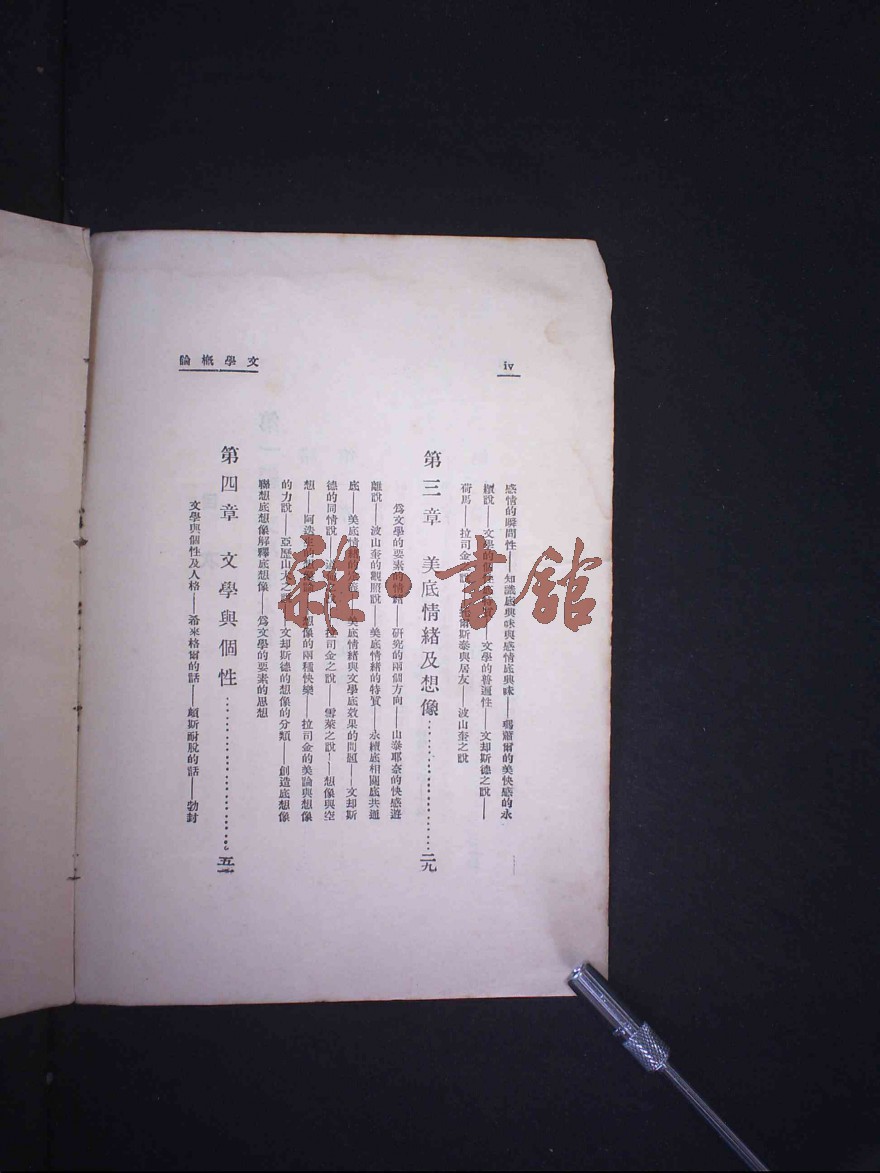 iv
文學概論
感情的瞬間性——知識底興味與感情底興味——馬霱爾的美快感的永
續說——文學的個性——文學的普遍性——文却斯德之說——
荷馬——拉司金之說——爾斯泰與居友——波山奎之說
第三章 美底情緒及想像 二九
為文學的要素的情緒——研究的兩個方向——山泰耶奈的快感遊
離說——波山奎的觀照說——美底情緒的特質——永續底相關底共通
底——美底情緒的——美底情緒與文學底效果的問題——文却斯
德的同情說——拉司金之說——雪萊之說——想像與空
想——想像的兩種快樂——拉司金的美論與想像
的力說——亞歷山大之說——文却斯德的想像的分類——創造底想像
聯想底想像解釋底想像——為文學的要素的思想
第四章 文學與個性 五一
文學與個性及人格——希來格爾的話——頗斯耐脫的話——勃封
雜·書館